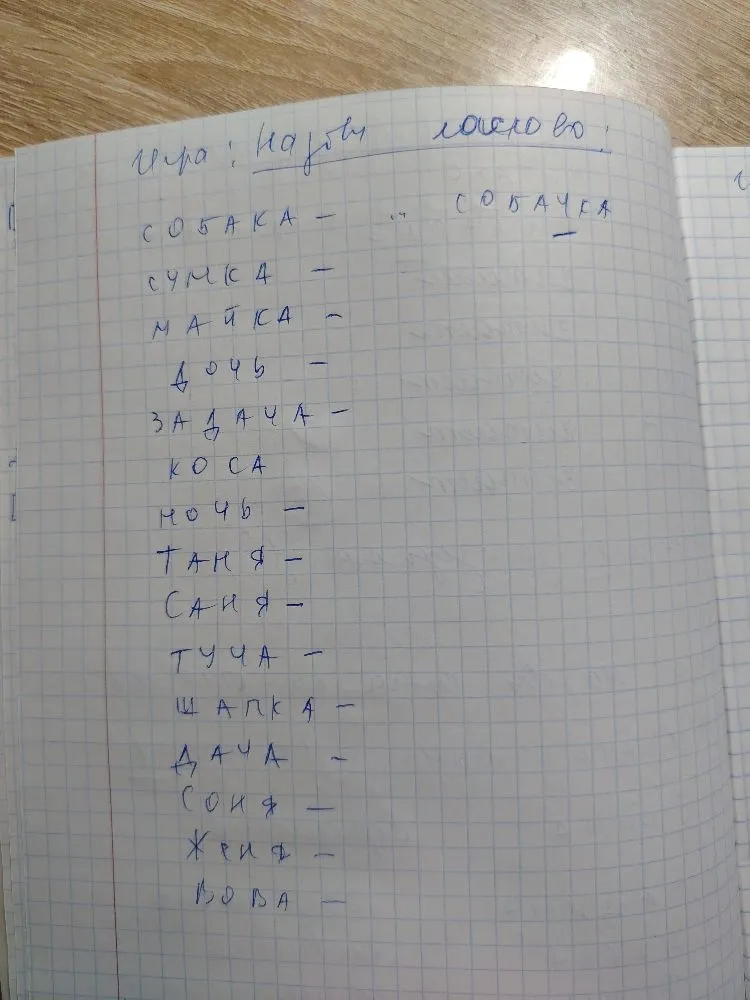 Игра: Назови ласково:
СОБАКА – СОБАЧКА
СУМКА –
МАЙКА –
ДОЧЬ –
ЗАДАЧА –
КОСА
НОЧЬ –
ТАНЯ –
САНЯ –
ТУЧА –
ШАПКА –
ДАЧА –
СОНЯ –
ЖЕНЯ –
ВОВА –